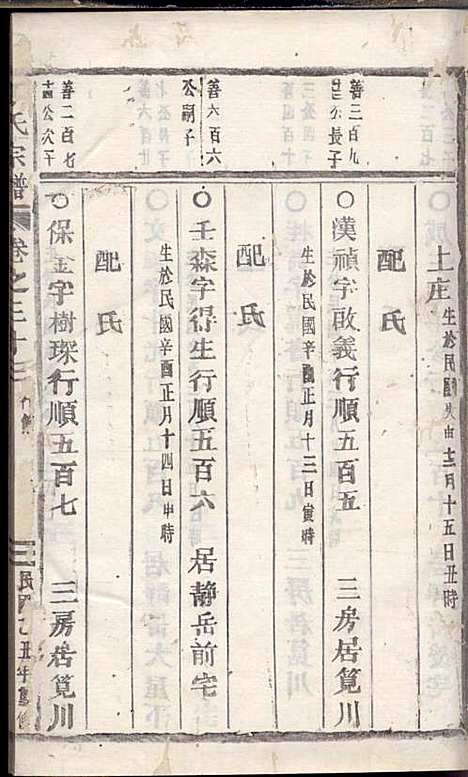 上庄
生於民國癸亥十二月十五日丑時
配氏
善三百九
十三公長子
○漢禎字啟義行順五百五 三房居筧川
生於民國辛酉正月十三日寅時
配氏
善六百六
公嗣子
○壬森字得生行順五百六 居靜岳前宅
生於民國辛酉正月十四日申時
配氏
善二百七
十四公次子
○保金字樹琛行順五百七 三房居筧川
氏宗譜 卷之三十三
三 民國乙丑年